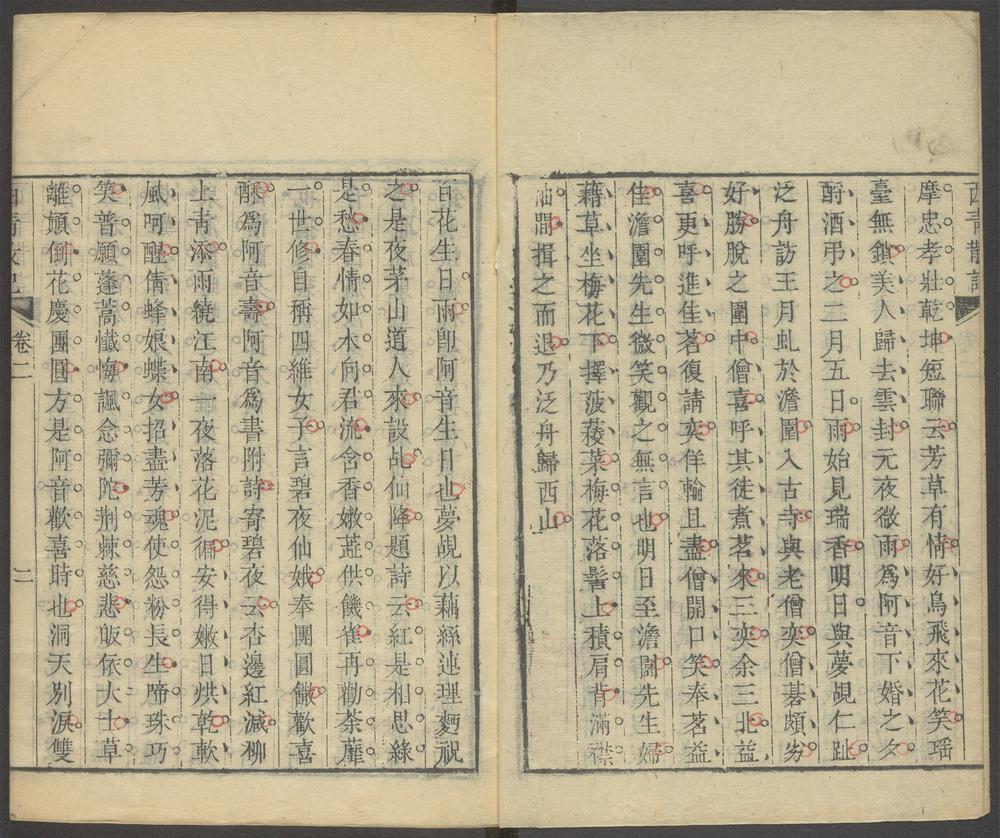 西青散記
摩忠孝壯乾坤短聯云芳草有情好鳥飛來花笑瑶
臺無鎖美人歸去雲封元夜微雨爲阿音下婚之夕
酹酒弔之二月五日雨始見瑞香明日與夢覘仁趾
泛舟訪王月虬於澹園入古寺與老僧奕僧碁頗劣
好勝脫之圍中僧喜呼其徒煮茗來三奕余三北益
喜更呼進佳茗復請奕佯輸且盡僧開口笑奉茗益
佳澹園先生微笑觀之無言也明日至澹園先生婦
藉草坐梅花下擇菠薐菜梅花落髻上積肩背滿襟
袖間揖之而退乃泛舟歸西山
百花生日雨卽阿音生日也夢覘以藕絲連理麪祝
之是夜茅山道人來設乩仙降題詩云紅是相思綠
是愁春情如水向君流含香嫩蕋供饑雀再勸荼蘼
一世修自稱四維女子言碧夜仙娥奉團圓䭔歡喜
酥爲阿音壽阿音爲書附詩寄碧夜云杏邊紅減柳
上青添雨繞江南一夜落花泥徧安得嫩日烘乾軟
風呵醒倩蜂娘蝶女招盡芳魂使怨粉長生啼珠巧
笑普願蓬蒿懴悔諷念彌陀荆棘慈悲皈依大士草
離顛倒花慶團圓方是阿音歡喜時也洞天別淚雙
西青散記
卷二
二